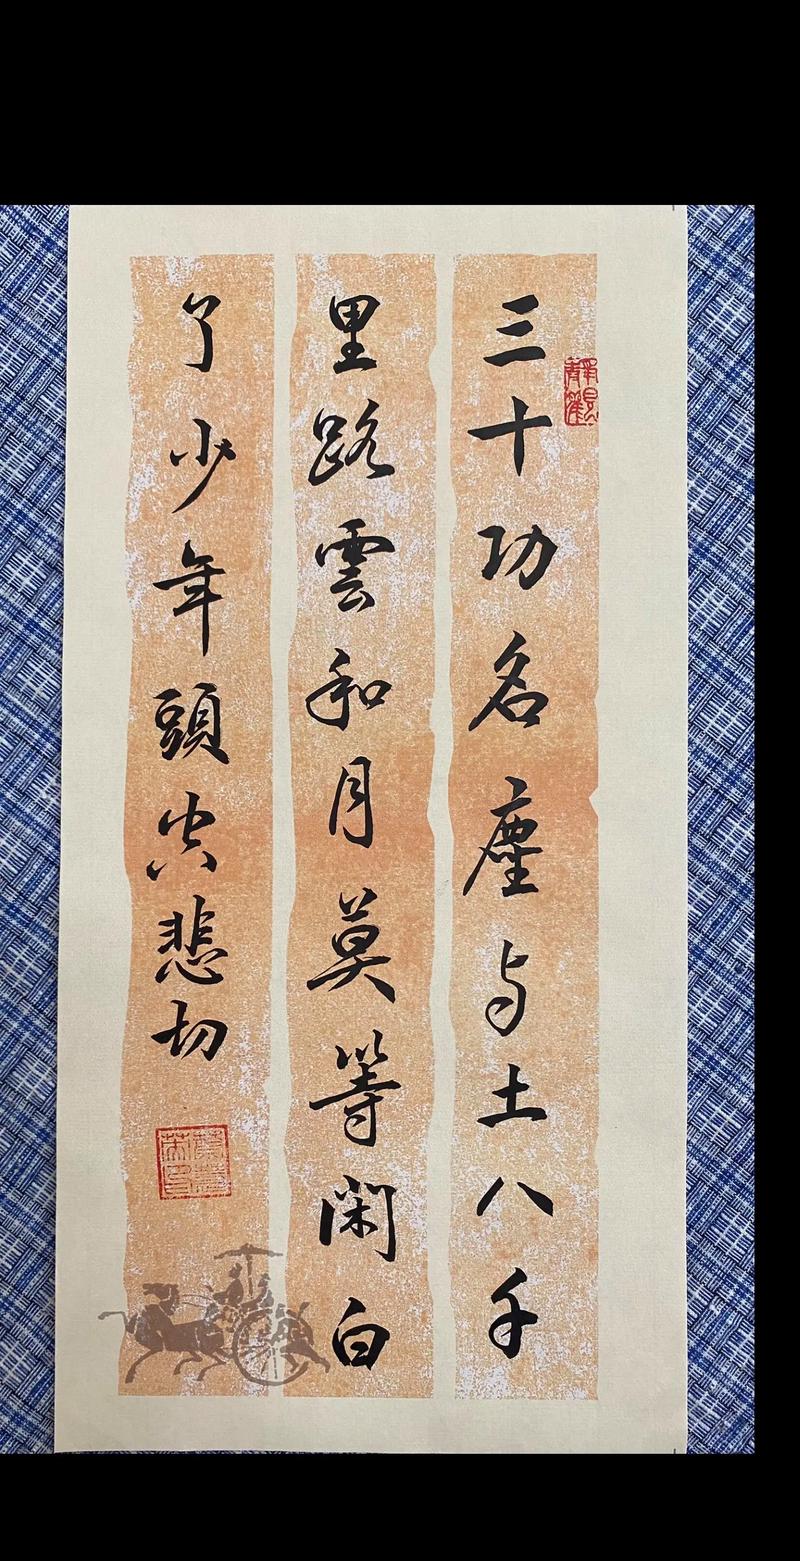 三十功名塵与土八千
里路雲和月莫等閑白
了少年頭空悲切